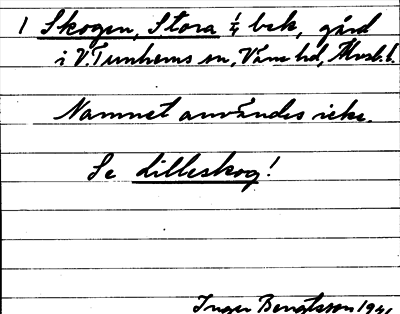 1 Skogen, Stora ¼ bek, gård
i V. Tunhems sn, Väne hd, Älvsb. l.
Namnet användes icke.
Se Lilleskog!
Inger Bengtsson